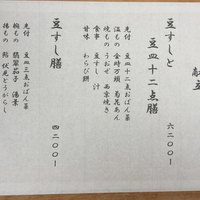 献立
豆すしと
豆皿十二点膳
六二〇〇ー
先付 豆皿十二点おばん菜
温もの 金時万頭 菊花あん
焼もの うおぜ 西京焼き
食事 豆すし 汁
甘味 わらび餅
豆すし膳
四二〇〇ー
先付 豆皿三点おばん菜
椀もの 翡翠茄子 湯葉
揚もの 鮎 伏見とうがらし